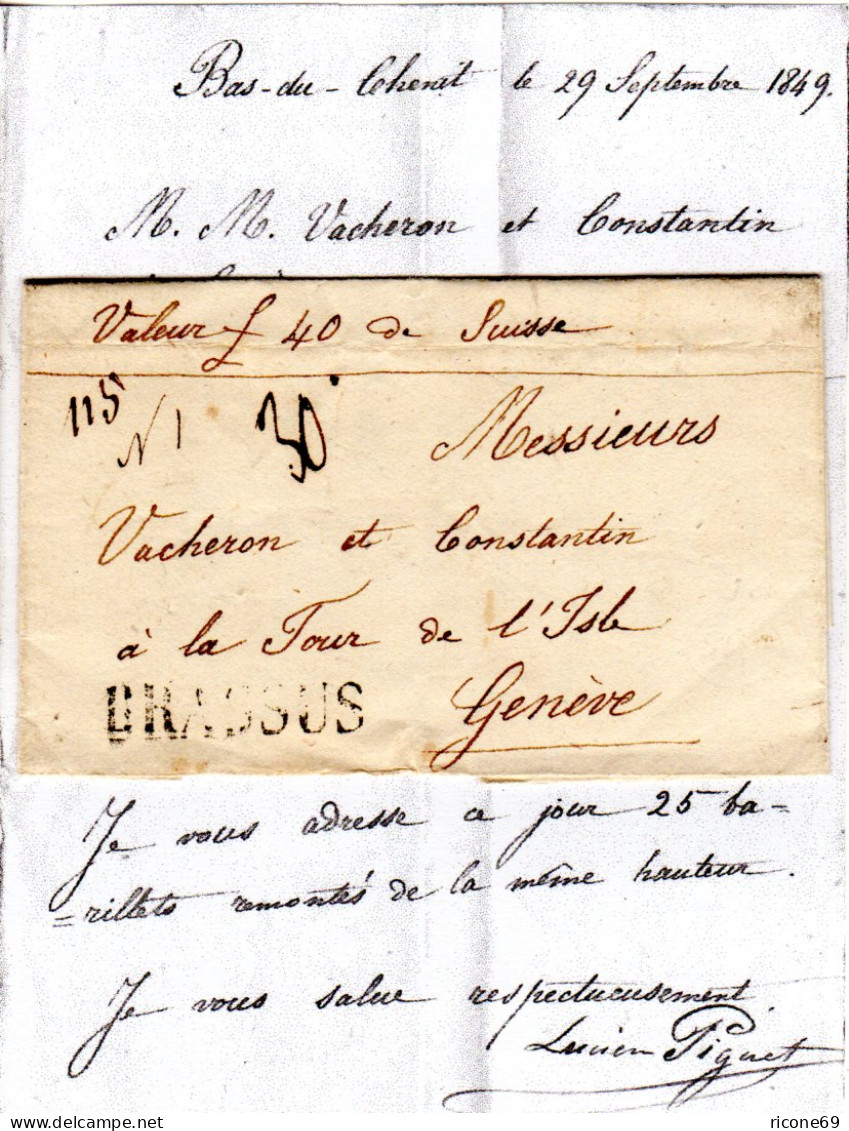 Bas-du-Chenit le 29 Septembre 1849.
M. M. Vacheron et Constantin
Valeur f 40 de Suisse
115 N 1 30
Messieurs
Vacheron et Constantin
à la Tour de l'Isle
BRASSUS Genève
Je vous adresse ce jour 25 ba=
=rillets remontés de la même hauteur.
Je vous salue respectueusement
Lucien Piguet
www.delcampe.net
ricone69